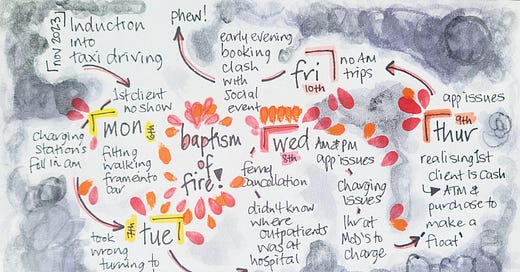 Nov 2023
Induction
into
taxi driving
1st client
no show
mon
6th
charging
stations
full in am
fitting
walking
frame into
car
baptism
of
fire!
tue
7th
took
wrong
turning to
ferry
cancellation
wed
8th
didn't know
where
outpatients
was at
hospital
AM & PM
app issues
charging
issues
1hr at
McD's to
charge
thur
9th
app issues
realising 1st
client is cash
ATM &
purchase to
make a
float
fri
10th
no AM
trips
early evening
booking
clash
with
social
event
phew!